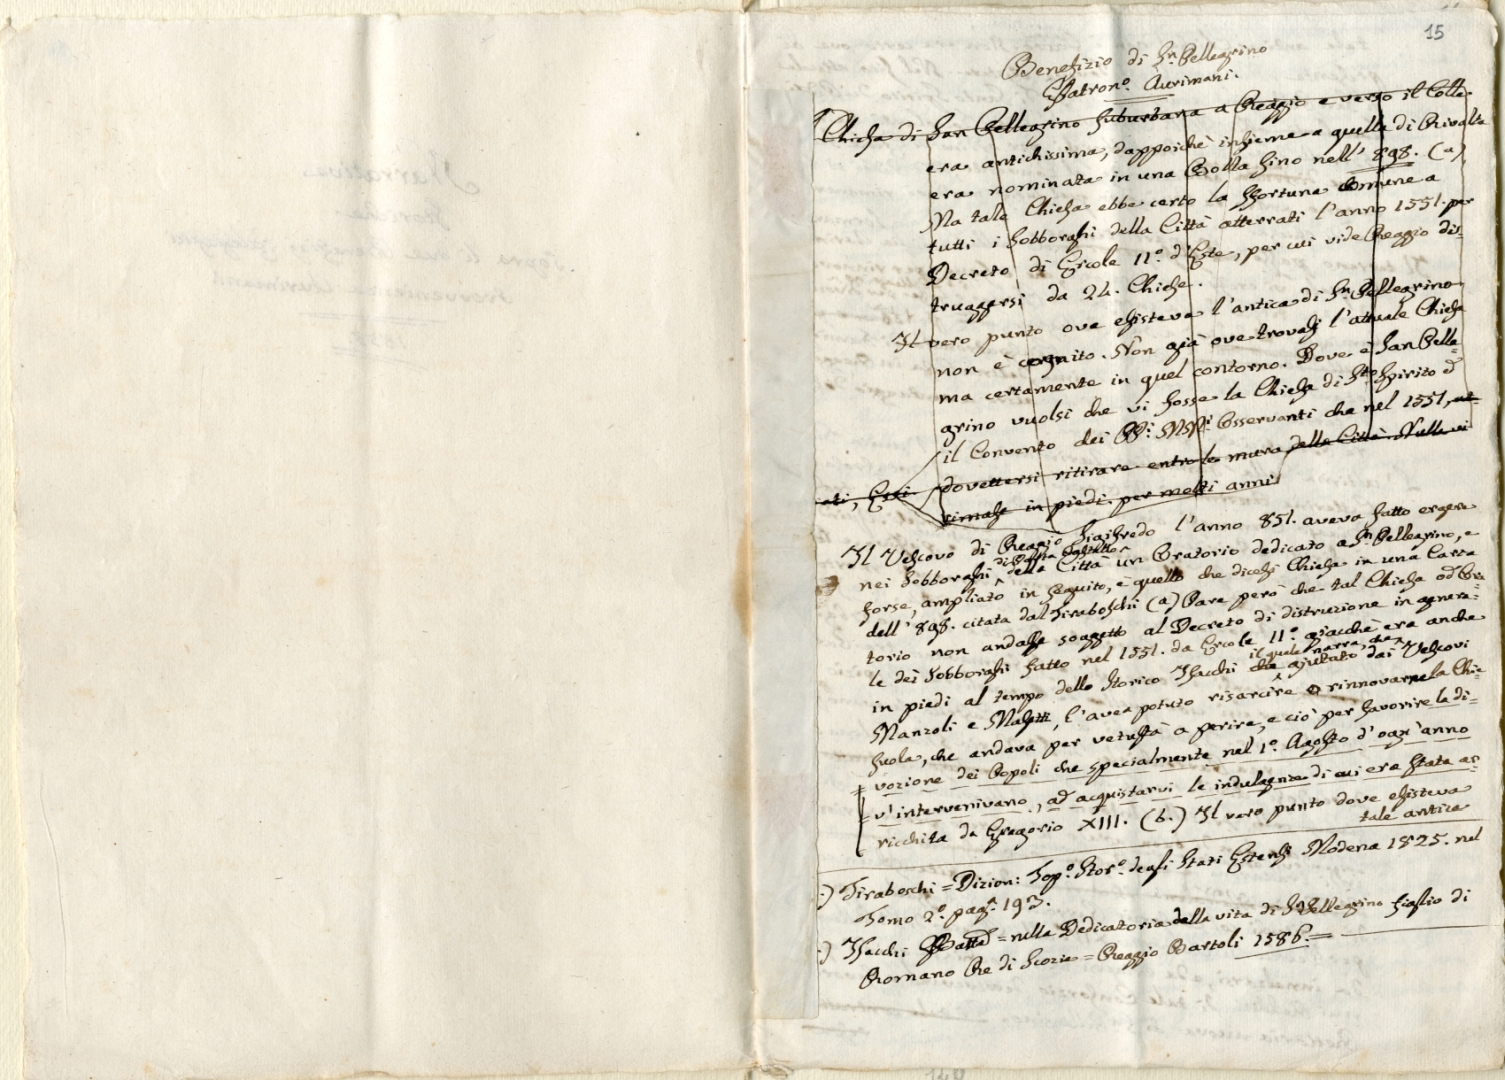 15
Benefizio di Sn. Pellegrino
Patron.o Aurimani.
Chiesa di San Pellegrino suburbana a Reggio e verso il Colle.
era antichissima, dappoichè insieme a quella di Rivalta
era nominata in una Bolla sino nell' 898. (a)
Ma tale Chiesa ebbe certo la sfortuna comune a
tutti i Sobborghi della Città atterrati l'anno 1551. per
Decreto di Ercole II.o d'Este, per cui vide Reggio dis=
truggersi da 24. Chiese.
Il vero punto ove esisteva l'antica di Sn. Pellegrino
non è cognito. Non già ove trovasi l'attuale Chiesa
ma certamente in quel contorno. Dove è San Pelle=
grino vuolsi che vi fosse la Chiesa di Sto. Spirito ed
il Convento dei Osservanti che nel 1551,
dovettersi ritirare entro le mura della Città. Nulla vi
rimase in piedi per molti anni
Il Vescovo di Reggio Sigifredo l'anno 851. aveva fatto ergere
nei Sobborghi della Città un Oratorio dedicato a Sn. Pellegrino, e
forse, ampliato in seguito, è quello che dicesi Chiesa in una Carta
dell' 898. citata dal Tiraboschi (a) Pare però che tal Chiesa od Ora=
torio non andasse soggetto al Decreto di distruzione in genera=
le dei Sobborghi fatto nel 1551. da Ercole II.o giacchè era anche
in piedi al tempo dello Storico Isacchi il quale narra, che ajutato dai Vescovi
Manzoli e Masetti, l'avea potuto risarcire o rinnovarne la Chie=
suola, che andava per vetustà a perire, e ciò per favorire la di=
vozione dei Popoli che specialmente nel 1.o Agosto d'ogn'anno
v'intervenivano, ad acquistarvi le indulgenze di cui era stata ar=
ricchita da Gregorio XIII. (b.) Il vero punto dove esisteva
tale antica
.) Tiraboschi = Dizion: Top.o Stor.o degli Stati Estensi Modena 1825. nel
Tomo 2.o pag.a 193.
.) Isacchi = nella Dedicatoria della vita di Sn. Pellegrino figlio di
Romano Re di Scozia = Reggio Bartoli 1586. =